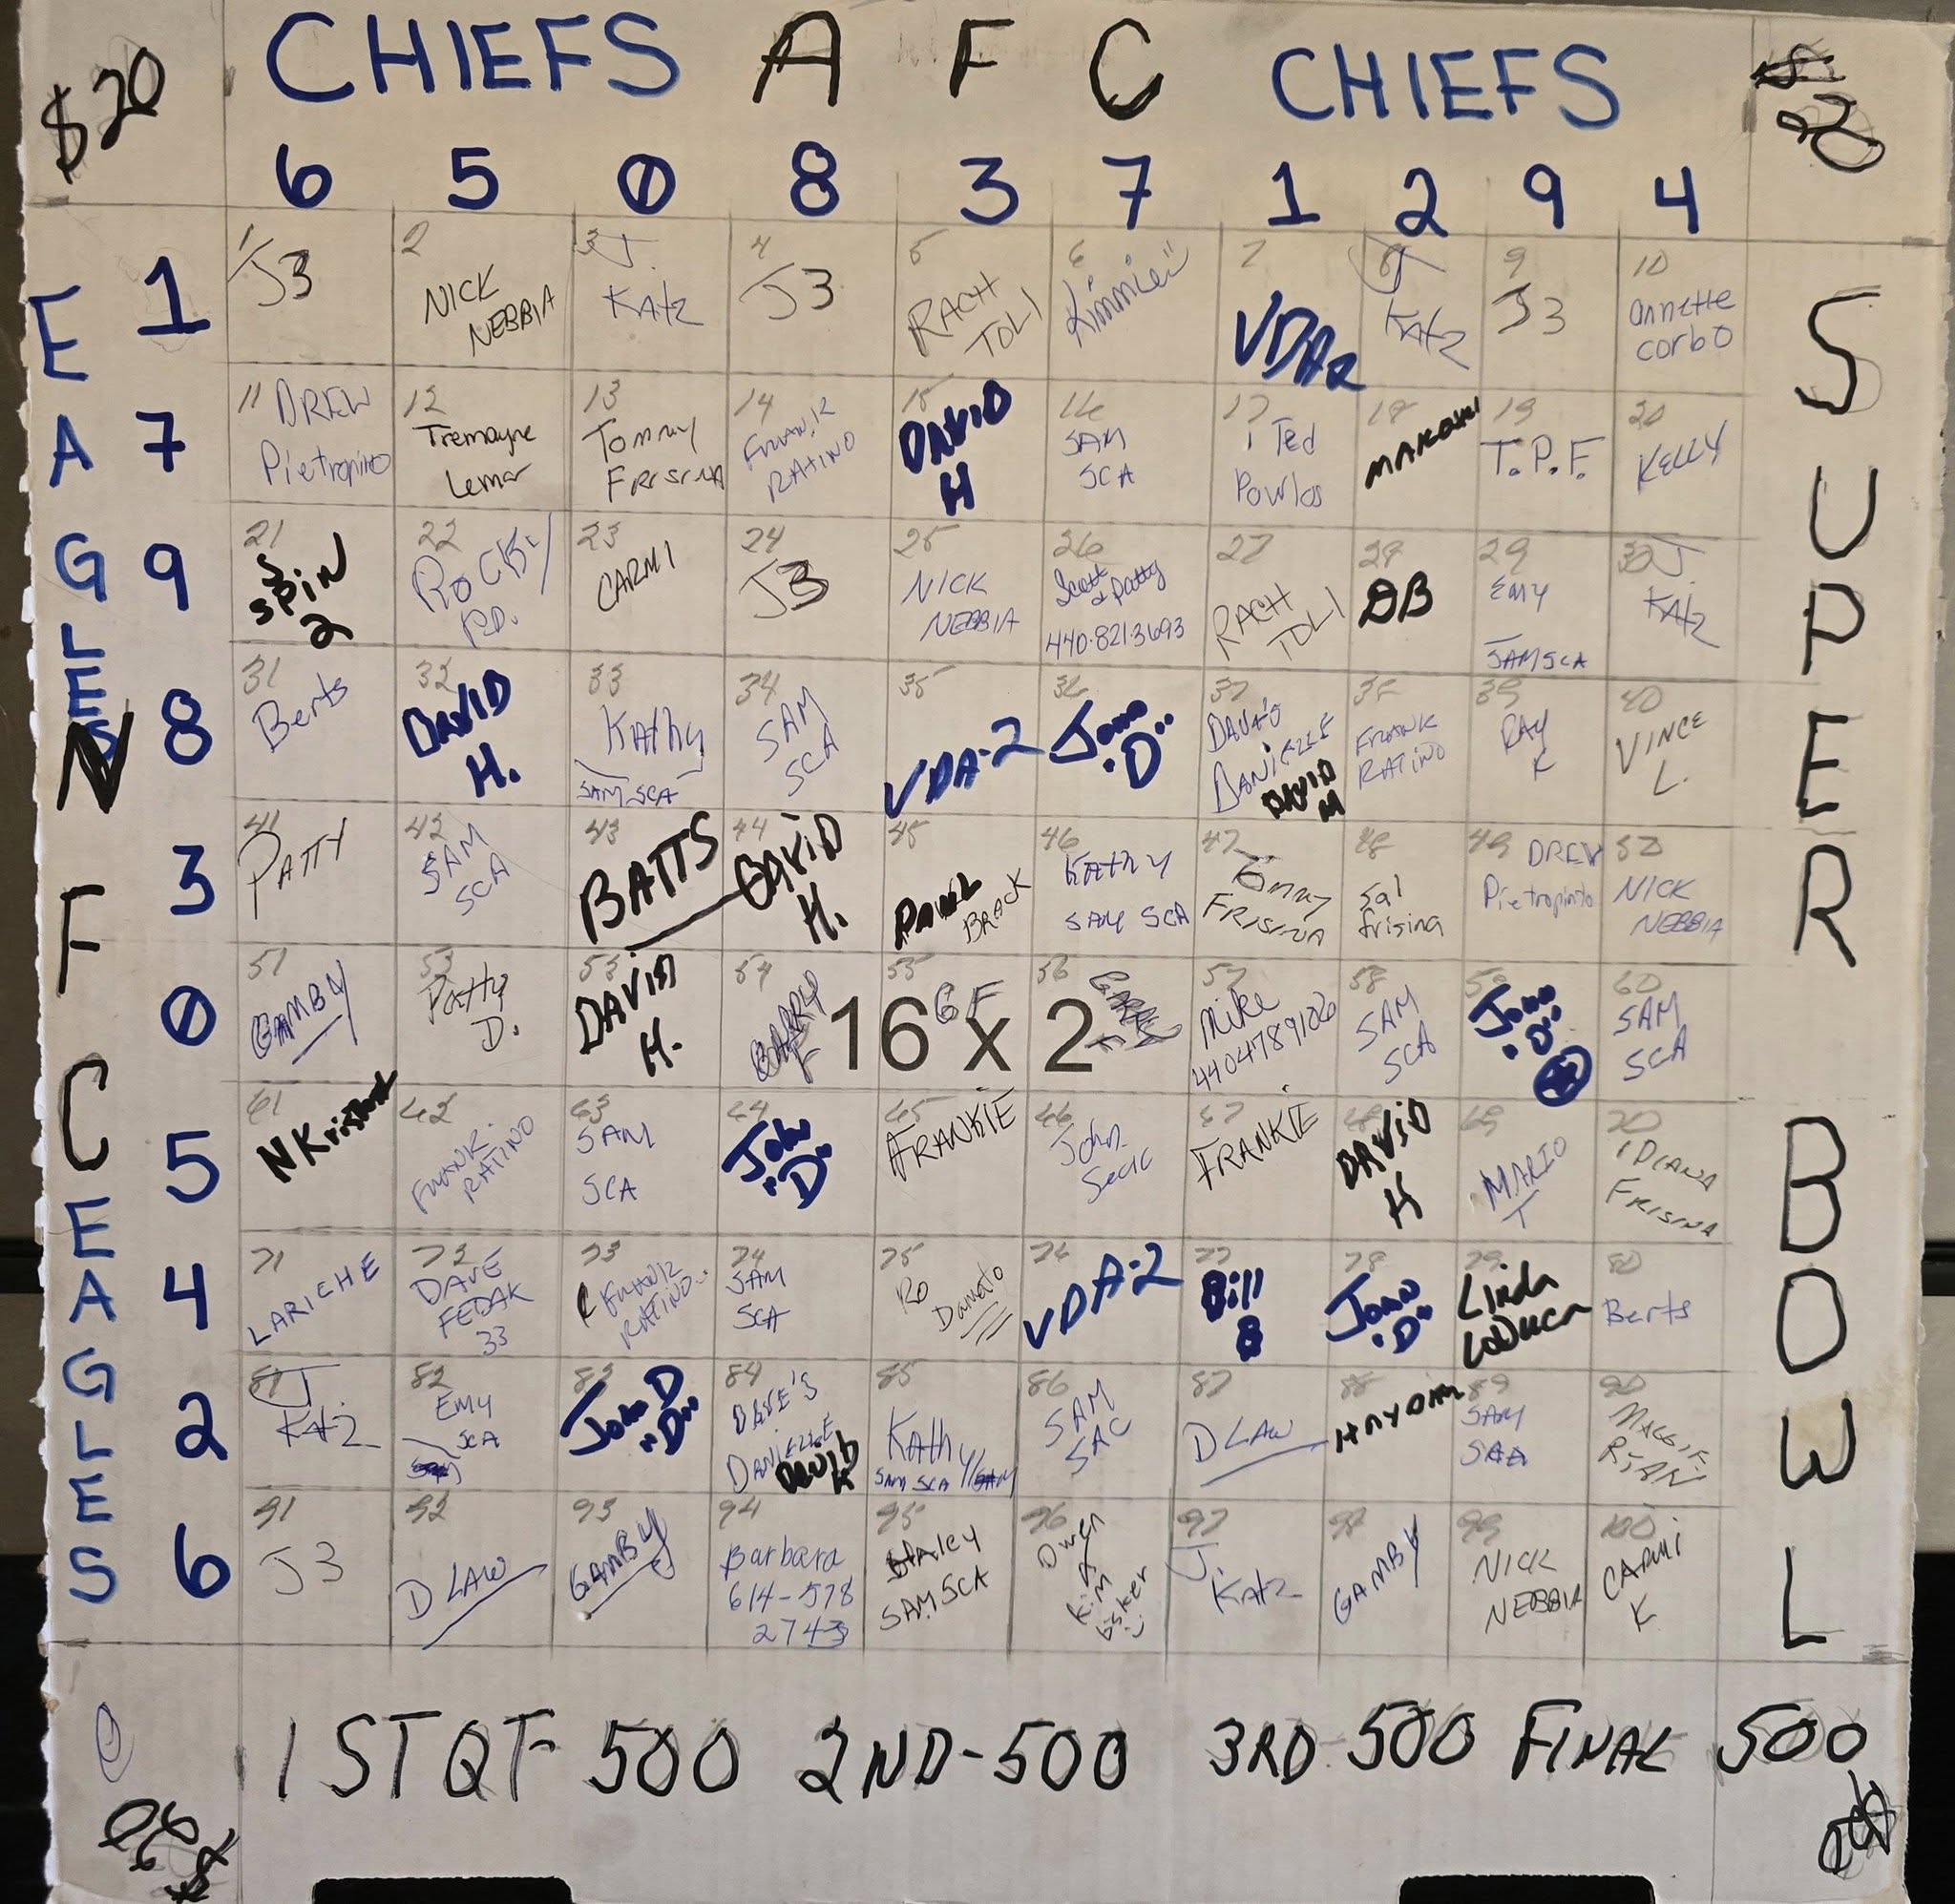 $20 CHIEFS A F C CHIEFS
6 5 0 8 3 7 1 2 9 4
EAGLES
N F C
EAGLES
SUPER
BOWL
1
1 J3
2 NICK NEBBIA
3 J. KATZ
4 J3
5 RACH TOLI
6 Kimmie
7 VDA2
8 J KATZ
9 J3
10 annette corbo
7
11 DREW Pietropinto
12 Tremayne Lemar
13 Tommy FRISINA
14 FRANK RATINO
15 DAVID H
16 SAM SCA
17 Ted Powlos
18
19 T.P.F.
20 KELLY
9
21 SPIN 2
22 ROCKY RD.
23 CARMI
24 J3
25 NICK NEBBIA
26 Scott & Patty 440-821-3693
27 RACH TOLI
28 DB
29 EMY SAM SCA
30 J. KATZ
8
31 Berts
32 DAVID H.
33 KATHY SAM SCA
34 SAM SCA
35 VDA-2
36 JOHN "D"
37 DAVE'S DANIELLE DAVID M
38 FRANK RATINO
39 RAY K
40 VINCE L.
3
41 PATTY
42 SAM SCA
43 BATTS
44 DAVID H.
45 BRACK
46 KATHY SAM SCA
47 Tommy FRISINA
48 Sal frisina
49 DREW Pietropinto
50 NICK NEBBIA
0
51 GAMBY
52 Patty D.
53 DAVID H.
54 GARY F
55 GF
56 GARY F
16 x 2
57 Mike 4404789106
58 SAM SCA
59 JOHN "D"
60 SAM SCA
5
61
62 FRANK RATINO
63 SAM SCA
64 JOHN "D"
65 FRANKIE
66 John Secic
67 FRANKIE
68 DAVID H
69 MARIO T
70 DIANA FRISINA
4
71 LARICHE
72 DAVE FEDAK 33
73 FRANK RATINO
74 SAM SCA
75 Ro Damato
76 VDA-2
77 Bill B
78 JOHN "D"
79 Linda LoDuca
80 Berts
2
81 J. KATZ
82 EMY SCA
83 JOHN D "D"
84 DAVE'S DANIELLE DAVID
85 KATHY SAM SCA
86 SAM SAC
87 D LAW
88
89 SAM SCA
90 MAGGIE RYAN
6
91 J3
92 D LAW
93 GAMBY
94 Barbara 614-578 2743
95 Haley SAM SCA
96 Owen & Kim
97 J. KATZ
98 GAMBY
99 NICK NEBBIA
100 CARMI K
1ST QT 500 2ND-500 3RD 500 FINAL 500